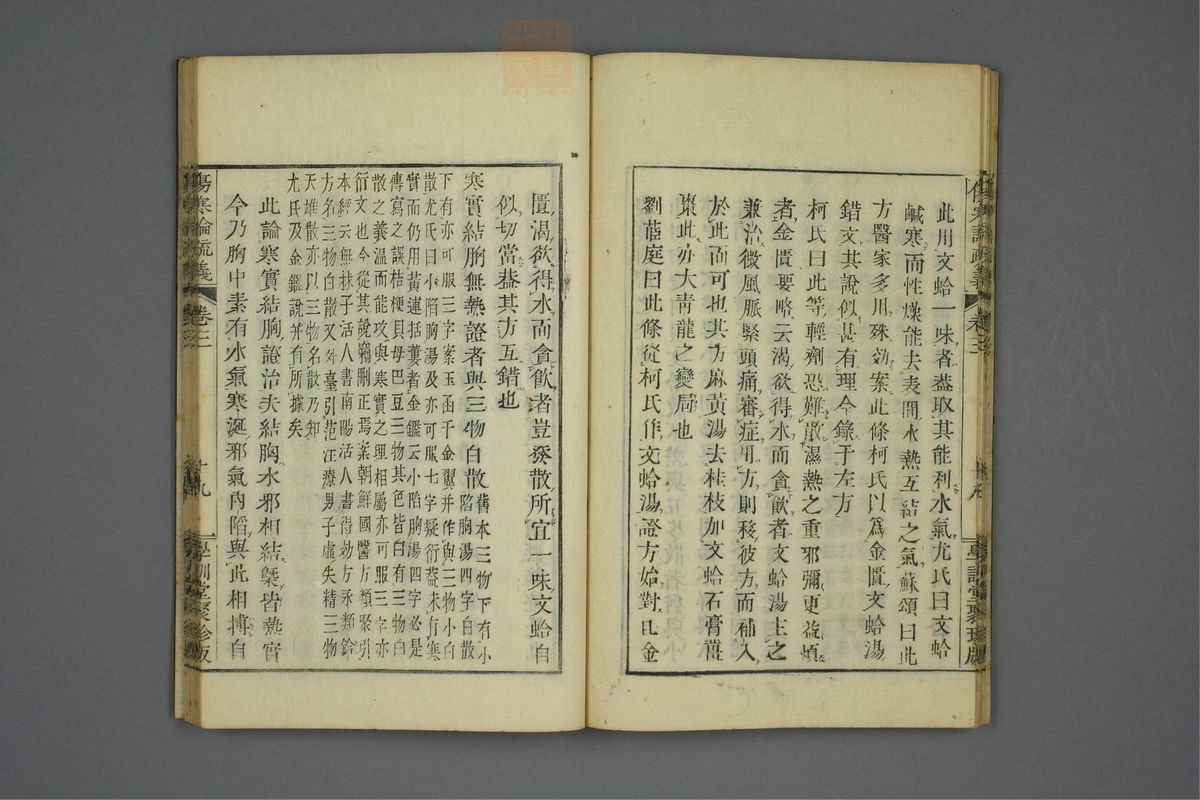 此川文蛤一味者葢取其能利水氣尤氏曰文蛤
鹹寒而性燥能去表間水熱互結之氣蘇頌曰此
方醫家多用殊効案此條柯氏以爲金匱文蛤湯
錯文其說似甚有理今錄于左方
柯氏曰此等輕劑恐難散濕熱之重邪彌更益煩
者金匱要略云渴欲得水而貪飮者文蛤湯主之
兼治微風脈緊頭痛審症用方則移彼方而補入
於此而可也其方麻黃湯去桂枝加文蛤石膏薑
棗此亦大青龍之變局也
劉茝庭曰此條從柯氏作文蛤湯證方始對且金
匱渴欲得水而貪飮者豈發散所宜一味文蛤自
似切當葢其方互錯也
寒實結胸無熱證者與三物白散
舊本三物下有小
陷胸湯四字白散
下有亦可服三字案玉函千金翼幷作與三物小白
散尤氏曰小陷胸湯及亦可服七字疑衍葢未有寒
實而仍用黃連括蔞者金鑑云小陷胸湯四字必是
傳寫之誤桔梗貝母巴豆三物其色皆白有三物白
散之義溫而能攻與寒實之理相屬亦可服三字亦
衍文也今從其說竊刪正焉案朝鮮國醫方類聚引
本經云無抹子活人書南陽活人書得効方永類鈐
方名三物白散又外臺引范汪療男子虛失精三物
天雄散亦以三物名散乃知
尤氏及金鑑說並有所據矣
此論寒實結胸證治夫結胸水邪相結槩皆熱實
今乃胸中素有水氣寒涎邪氣內䧟與此相搏自
傷寒論疏義
卷三
十九
學訓堂聚珍版